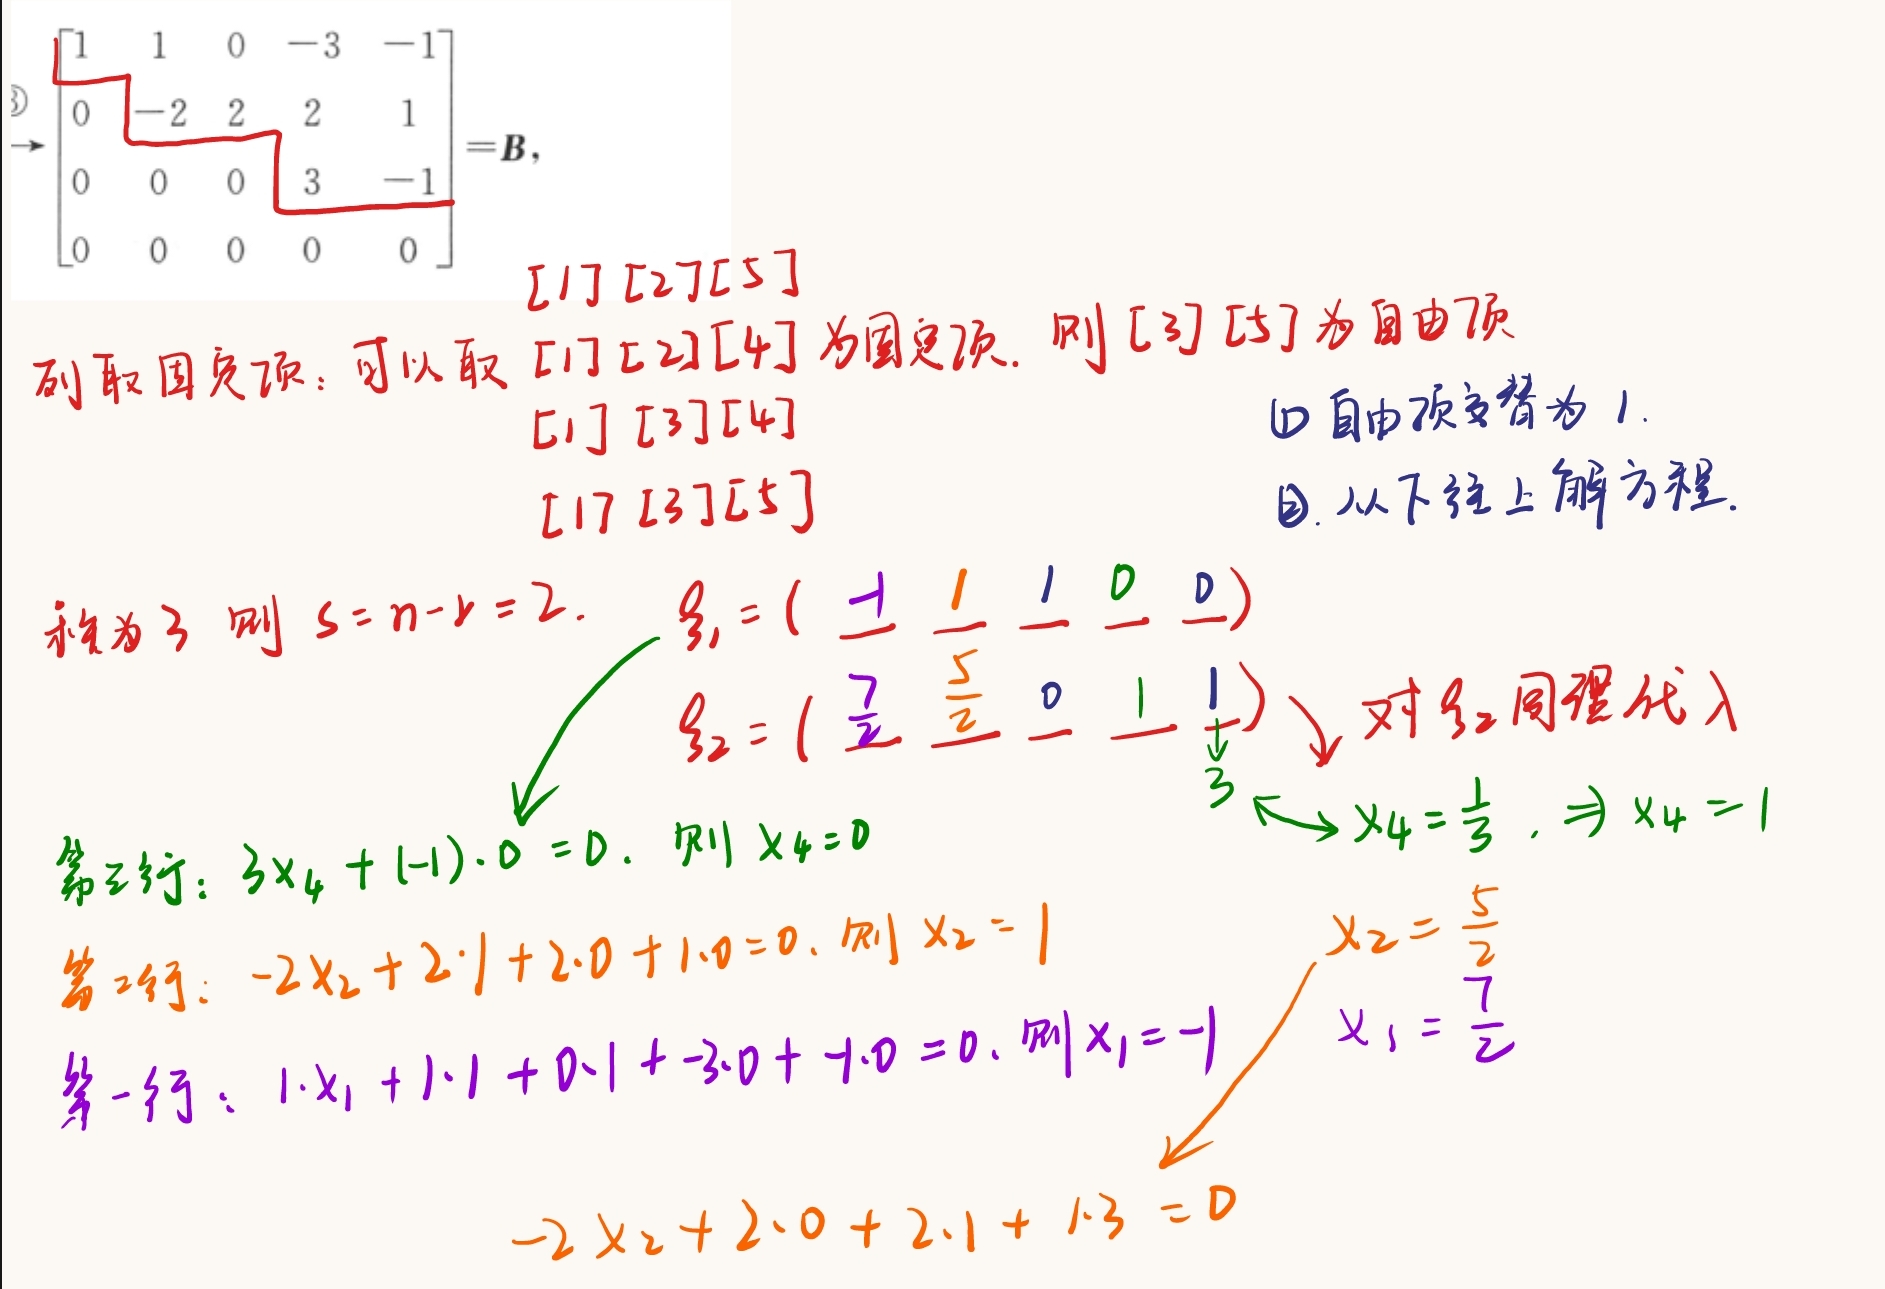 ③
→
[1 1 0 -3 -1
0 -2 2 2 1
0 0 0 3 -1
0 0 0 0 0] =B,
[1][2][5]
列取固定项：可以取 [1][2][4] 为固定项. 则[3][5]为自由项
[1][3][4]
[1][3][5]
① 自由项交替为1.
②. 从下往上解方程.
秩为3 则 s=n-r=2.
ξ₁=( -1 1 1 0 0 )
ξ₂=( 7/2 5/2 0 1 1 )
↓
3
对ξ₂同理代入
x₄=1/3 . ⇒ x₄=1
第三行：3x₄+(-1)·0=0. 则 x₄=0
第二行：-2x₂+2·1+2·0+1·0=0. 则 x₂=1
x₂=5/2
第一行：1·x₁+1·1+0·1+-3·0+-1·0=0. 则x₁=-1
x₁=7/2
-2x₂+2·0+2·1+1·3=0